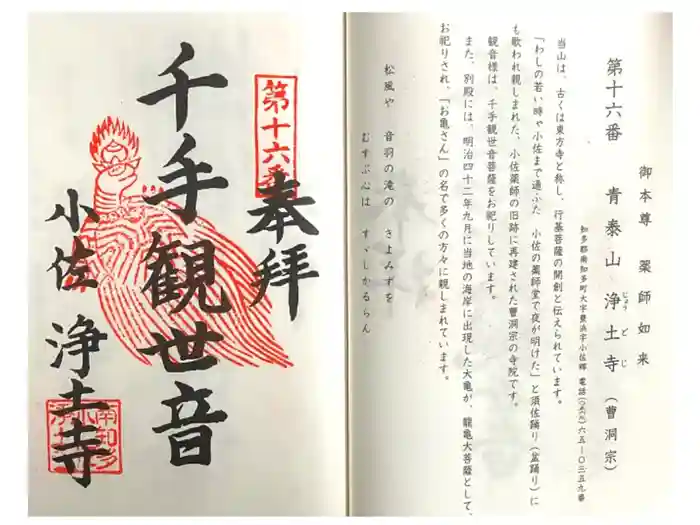 御本尊 薬師如来
第十六番 青泰山 浄土寺(曹洞宗)
じょうどじ
知多郡南知多町大字豊浜字小佐郷 電話(〇五六九)六五-〇三五九番
当山は、古くは東方寺と称し、行基菩薩の開創と伝えられています。
「わしの若い時ゃ小佐まで通ぶた 小佐の薬師堂で夜が明けた」と須佐踊り(盆踊り)に
も歌われ親しまれた、小佐薬師の旧跡に再建された曹洞宗の寺院です。
観音様は、千手観世音菩薩をお祀りしています。
また、別殿には、明治四十二年九月に当地の海岸に出現した大亀が、龍亀大菩薩として、
お祀りされ、「お亀さん」の名で多くの方々に親しまれています。
松風や 音羽の滝の きよみずを
むすぶ心は すゞしかるらん
第十六番
奉拝
千手観世音
小佐 浄土寺